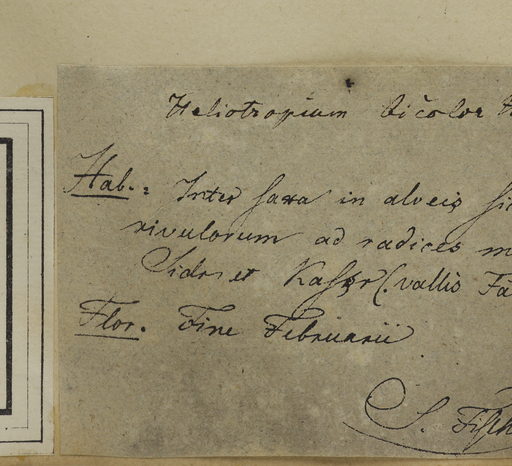 Heliotropium bicolor
Hab.: Inter saxa in alveis
rivulorum ad radices
Sidr et Kasser (vallis Fa
Flor. Fine Februarii
S. Fisch